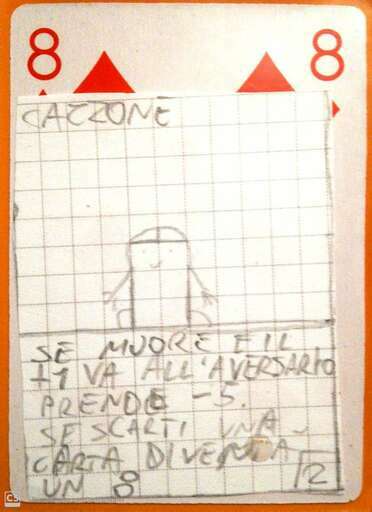 8 8
CAZZONE
SE MUORE E IL
+1 VA ALL'AVERSARIO
PRENDE -5.
SE SCARTI UNA
CARTA DIVENTA
UN 8
2
CS